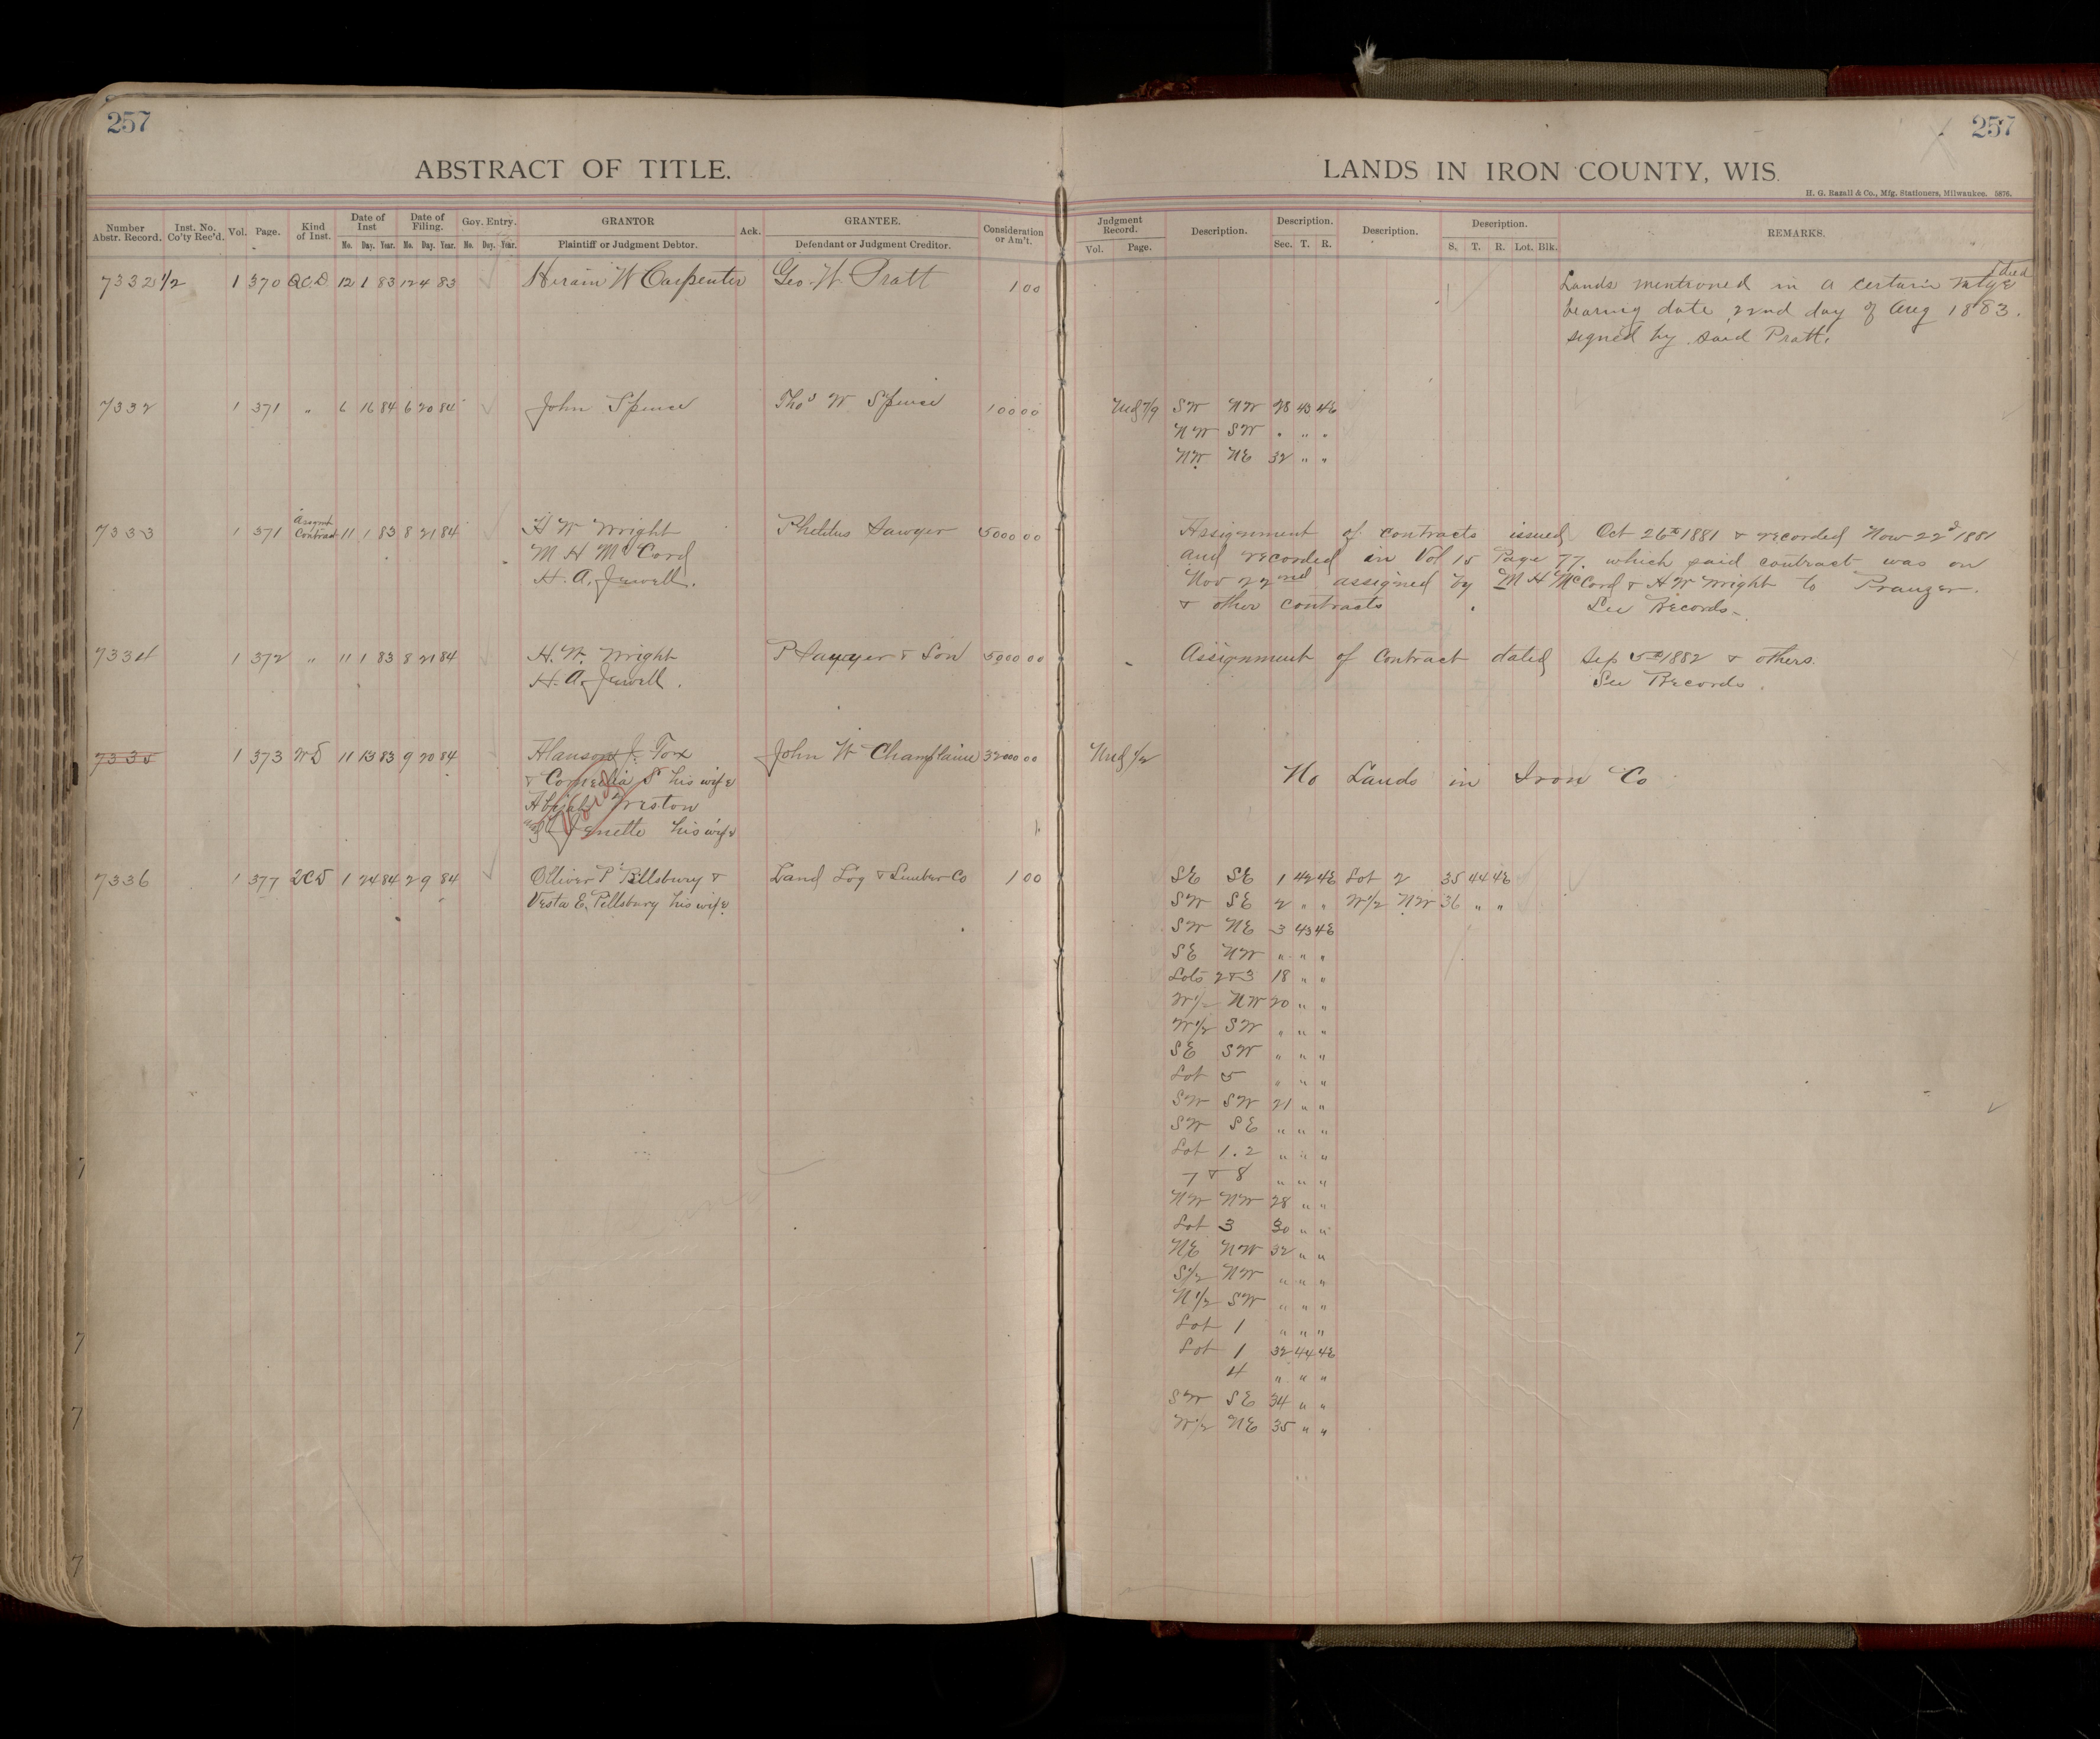 257
257
ABSTRACT OF TITLE.
LANDS IN IRON COUNTY, WIS.
H. G. Razall & Co., Mfg. Stationers, Milwaukee. 5876.
Number Abstr. Record. Inst. No. Co'ty Rec'd. Vol. Page. Kind of Inst. Date of Inst Mo. Day. Year. Date of Filing. Mo. Day. Year. Gov. Entry. Mo. Day. Year. GRANTOR Plaintiff or Judgment Debtor. Ack. GRANTEE. Defendant or Judgment Creditor. Consideration or Am't.
Judgment Record. Vol. Page. Description. Description. Sec. T. R. Description. Description. S. T. R. Lot. Blk. REMARKS.
7332 1/2 1 370 Q.C.D. 12 1 83 12 4 83 Hiram W Carpenter Geo. W. Pratt 1 00
Lands mentioned in a certain mtge deed
bearing date 22nd day of Aug 1883.
signed by said Pratt.
7332 1 371 " 6 16 84 6 20 84 John Spence Thos W Spence 100 00 Und 7/9 SW NW 28 43 4E
NW SW " " "
NW NE 32 " "
7333 1 371 Assgmt Contract 11 1 83 8 21 84 H W Wright Philetus Sawyer 5000 00
M H McCord
H. A. Jewell.
Assignment of contracts issued Oct 26th 1881 & recorded Nov 22d 1881
and recorded in Vol 15 Page 77. which said contract was on
Nov 22nd assigned by M H McCord & H W Wright to Pranger.
& other contracts See Records.
7334 1 372 " 11 1 83 8 21 84 H. W. Wright P Sawyer & Son 5900 00 Assignment of Contract dated Sep 5th 1882 & others.
H. A. Jewell. See Records.
7335 1 373 WD 11 13 83 9 20 84 Alanson J. Fox John W Champlaine 32000 00 Und 1/2
& Cornelia S his wife
Abijah Weston
and Jenette his wife
No Lands in Iron Co
7336 1 377 QCD 1 24 84 2 9 84 Olliver P Pillsbury & Land Log & Lumber Co 1 00 SE SE 1 42 4E Lot 2 35 44 4E
Vesta E. Pillsbury his wife SW SE 2 " " W1/2 NW 36 " "
SW NE 3 43 4E
SE NW " " "
Lots 2 & 3 18 " "
W1/2 NW 20 " "
W1/2 SW " " "
SE SW " " "
Lot 5 " " "
SW SW 21 " "
SW SE " " "
Lot 1. 2 " " "
7 & 8 " " "
NW NW 28 " "
Lot 3 30 " "
NE NW 32 " "
S1/2 NW " " "
N1/2 SW " " "
Lot 1 " " "
Lot 1 32 44 4E
4 " " "
SW SE 34 " "
W1/2 NE 35 " "